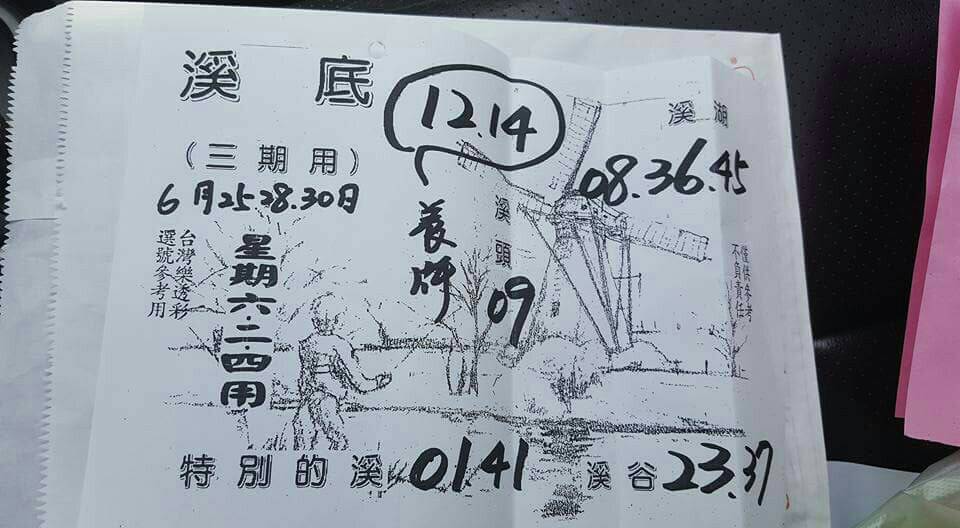 溪底
12.14
溪湖
(三期用)
08.36.45
6月25.28.30日
養牌
溪頭
09
台灣樂透彩
選號參考用
星期六.二.四用
僅供參考
不負責任
特別的溪 0141
溪谷 23.37